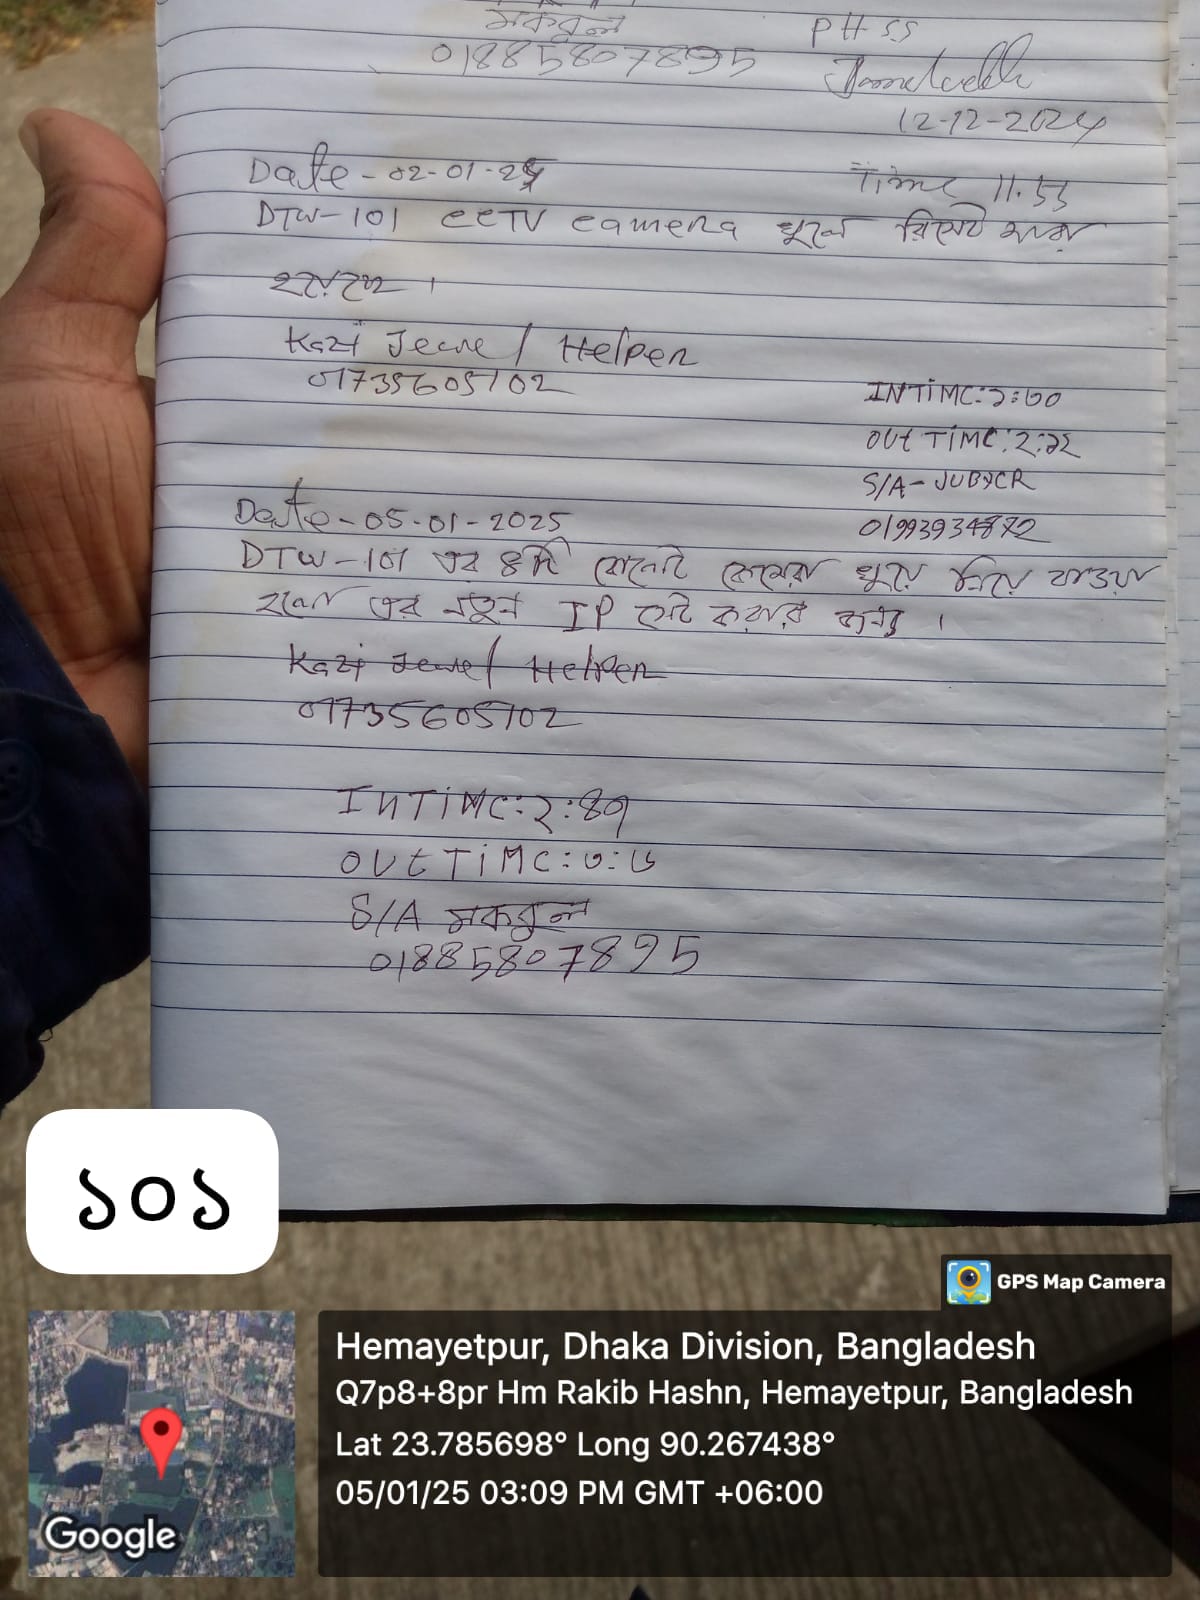 মকবুল
01885807895
PH-SS
12-12-2024
Date - 02-01-25
Time 11.53
DTW-101 CCTV Camera খুলে রিসেট করা
হয়েছে ।
Kazi Jewel / Helper
01735605102
INTiMC: ২:৩০
OUt TiMC: ২:২২
S/A - JUBYER
01993934872
Date - 05-01-2025
DTW-101 এর ৪টি বোলেট কেমেরা খুলে নিয়ে যাওয়া
হলো এর নতুন IP সেট করার জন্য ।
Kazi Jewel / Helper
01735605102
INTiMC: ২:৪৭
OUtTiMC: ৩:১৬
S/A মকবুল
01885807895
১০১
GPS Map Camera
Hemayetpur, Dhaka Division, Bangladesh
Q7p8+8pr Hm Rakib Hashn, Hemayetpur, Bangladesh
Lat 23.785698° Long 90.267438°
05/01/25 03:09 PM GMT +06:00
Google